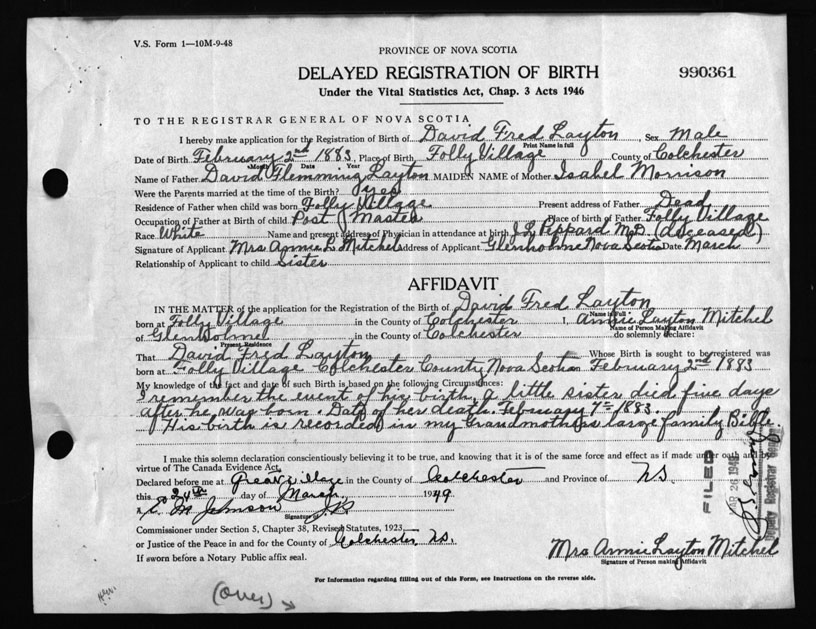 V.S. Form 1—10M-9-48
PROVINCE OF NOVA SCOTIA
DELAYED REGISTRATION OF BIRTH
990361
Under the Vital Statistics Act, Chap. 3 Acts 1946
TO THE REGISTRAR GENERAL OF NOVA SCOTIA
I hereby make application for the Registration of Birth of David Fred Layton Sex Male
Print Name in full
Date of Birth February 2nd 1883, Place of Birth Folly Village County of Colchester
Month Date Year
Name of Father David Flemming Layton MAIDEN NAME of Mother Isabel Morrison
Were the Parents married at the time of the Birth? yes
Residence of Father when child was born Folly Village Present address of Father Dead
Occupation of Father at Birth of child Post Master Place of birth of Father Folly Village
Race White Name and present address of Physician in attendance at birth J L Peppard M.D. (deceased)
Signature of Applicant Mrs Annie L. Mitchel Address of Applicant Glenholme Nova Scotia Date March
Relationship of Applicant to child Sister
AFFIDAVIT
IN THE MATTER of the application for the Registration of the Birth of David Fred Layton
Name in Full
born at Folly Village in the County of Colchester I, Annie Layton Mitchel
Name of Person Making Affidavit
of Glenholme in the County of Colchester do solemnly declare:
Present Residence
That David Fred Layton Whose Birth is sought to be registered was
born at Folly Village Colchester County Nova Scotia February 2nd 1883
My knowledge of the fact and date of such Birth is based on the following Circumstances:
I remember the event of his birth, A little sister died five days
after he was born. Date of her death February 7th 1883.
His birth is recorded in my Grandmothers large family Bible
I make this solemn declaration conscientiously believing it to be true, and knowing that it is of the same force and effect as if made under oath and by
virtue of The Canada Evidence Act.
Declared before me at Great Village in the County of Colchester and Province of N.S.
this 24th day of March 1949
M Johnson J.P.
Signature of
Commissioner under Section 5, Chapter 38, Revised Statutes, 1923
or Justice of the Peace in and for the County of Colchester, N.S.
If sworn before a Notary Public affix seal.
Mrs Annie Layton Mitchel
Signature of Person making Affidavit
FILED
MAR 26 1949
Deputy Registrar General
For Information regarding filling out of this Form, see Instructions on the reverse side.
(over)